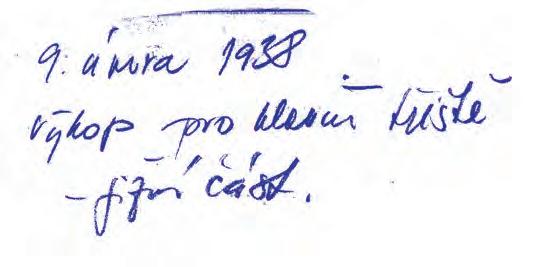 9. února 1938
výkop pro hlavní tříště
- jižní část.